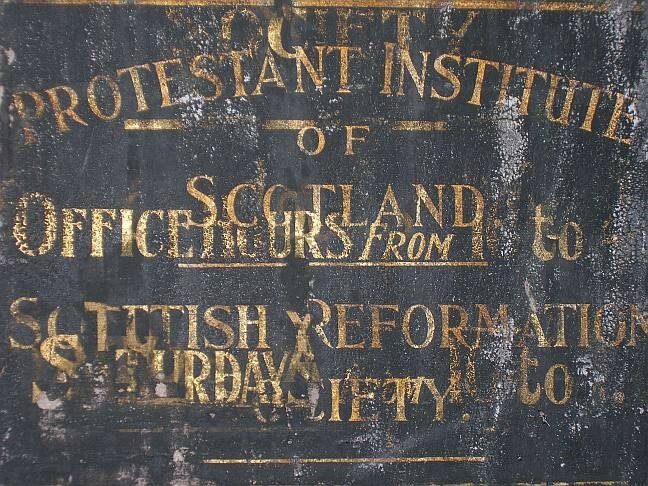 SOCIETY
PROTESTANT INSTITUTE
OF
SCOTLAND
OFFICE HOURS FROM to
SCOTTISH REFORMATION
SATURDAYS to
SOCIETY.